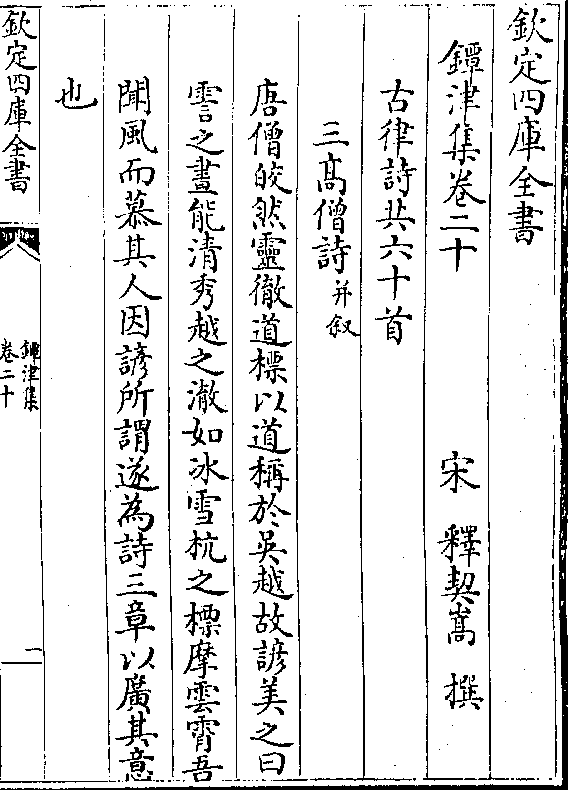 欽定四庫全書
鐔津集卷二十
宋 釋契嵩 撰
古律詩共六十首
三髙僧詩并叙
唐僧皎然靈徹道標以道稱於吳越故諺美之曰
霅之晝能清秀越之澈如冰雪杭之標摩雲霄吾
聞風而慕其人因諺所謂遂為詩三章以廣其意
也
欽定四庫全書
鐔津集
卷二十
一